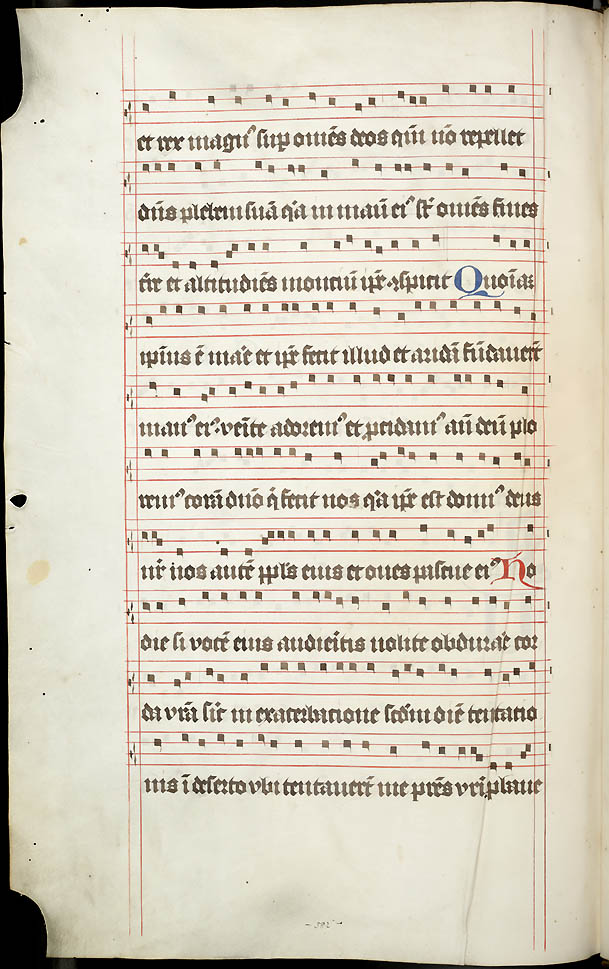 et rex magnꝰ sup omēs deos qm̄ nō repellet
dn̄s plebem suā qa in manu eiꝰ st̄ omēs fines
tr̄e et altitudiēs montiū ip̄e ꝯspicit Quoīaꝫ
ipius ē mare et ip̄e fecit illud et aridā fūdauert̄
manꝰ eiꝰ venite adoremꝰ et ꝓcidamꝰ an̄ deū plo
remꝰ corā dn̄o q̄ fecit nos qa ip̄e est domꝰ deus
nr̄ nos autē ppl̄s eius et oues pascue eiꝰ Ho
die si vocē eius audieritis nolite obdurare cor
da vr̄a sic̄ in exacerbacione scd̄m diē temtacio
nis ī deserto vbi temtauert̄ me pr̄es vr̄i ꝓbaue